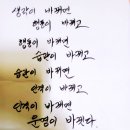 생각이 바뀌면
행동이 바뀌고
행동이 바뀌면
습관이 바뀌고
습관이 바뀌면
인격이 바뀌고
인격이 바뀌면
운명이 바뀐다